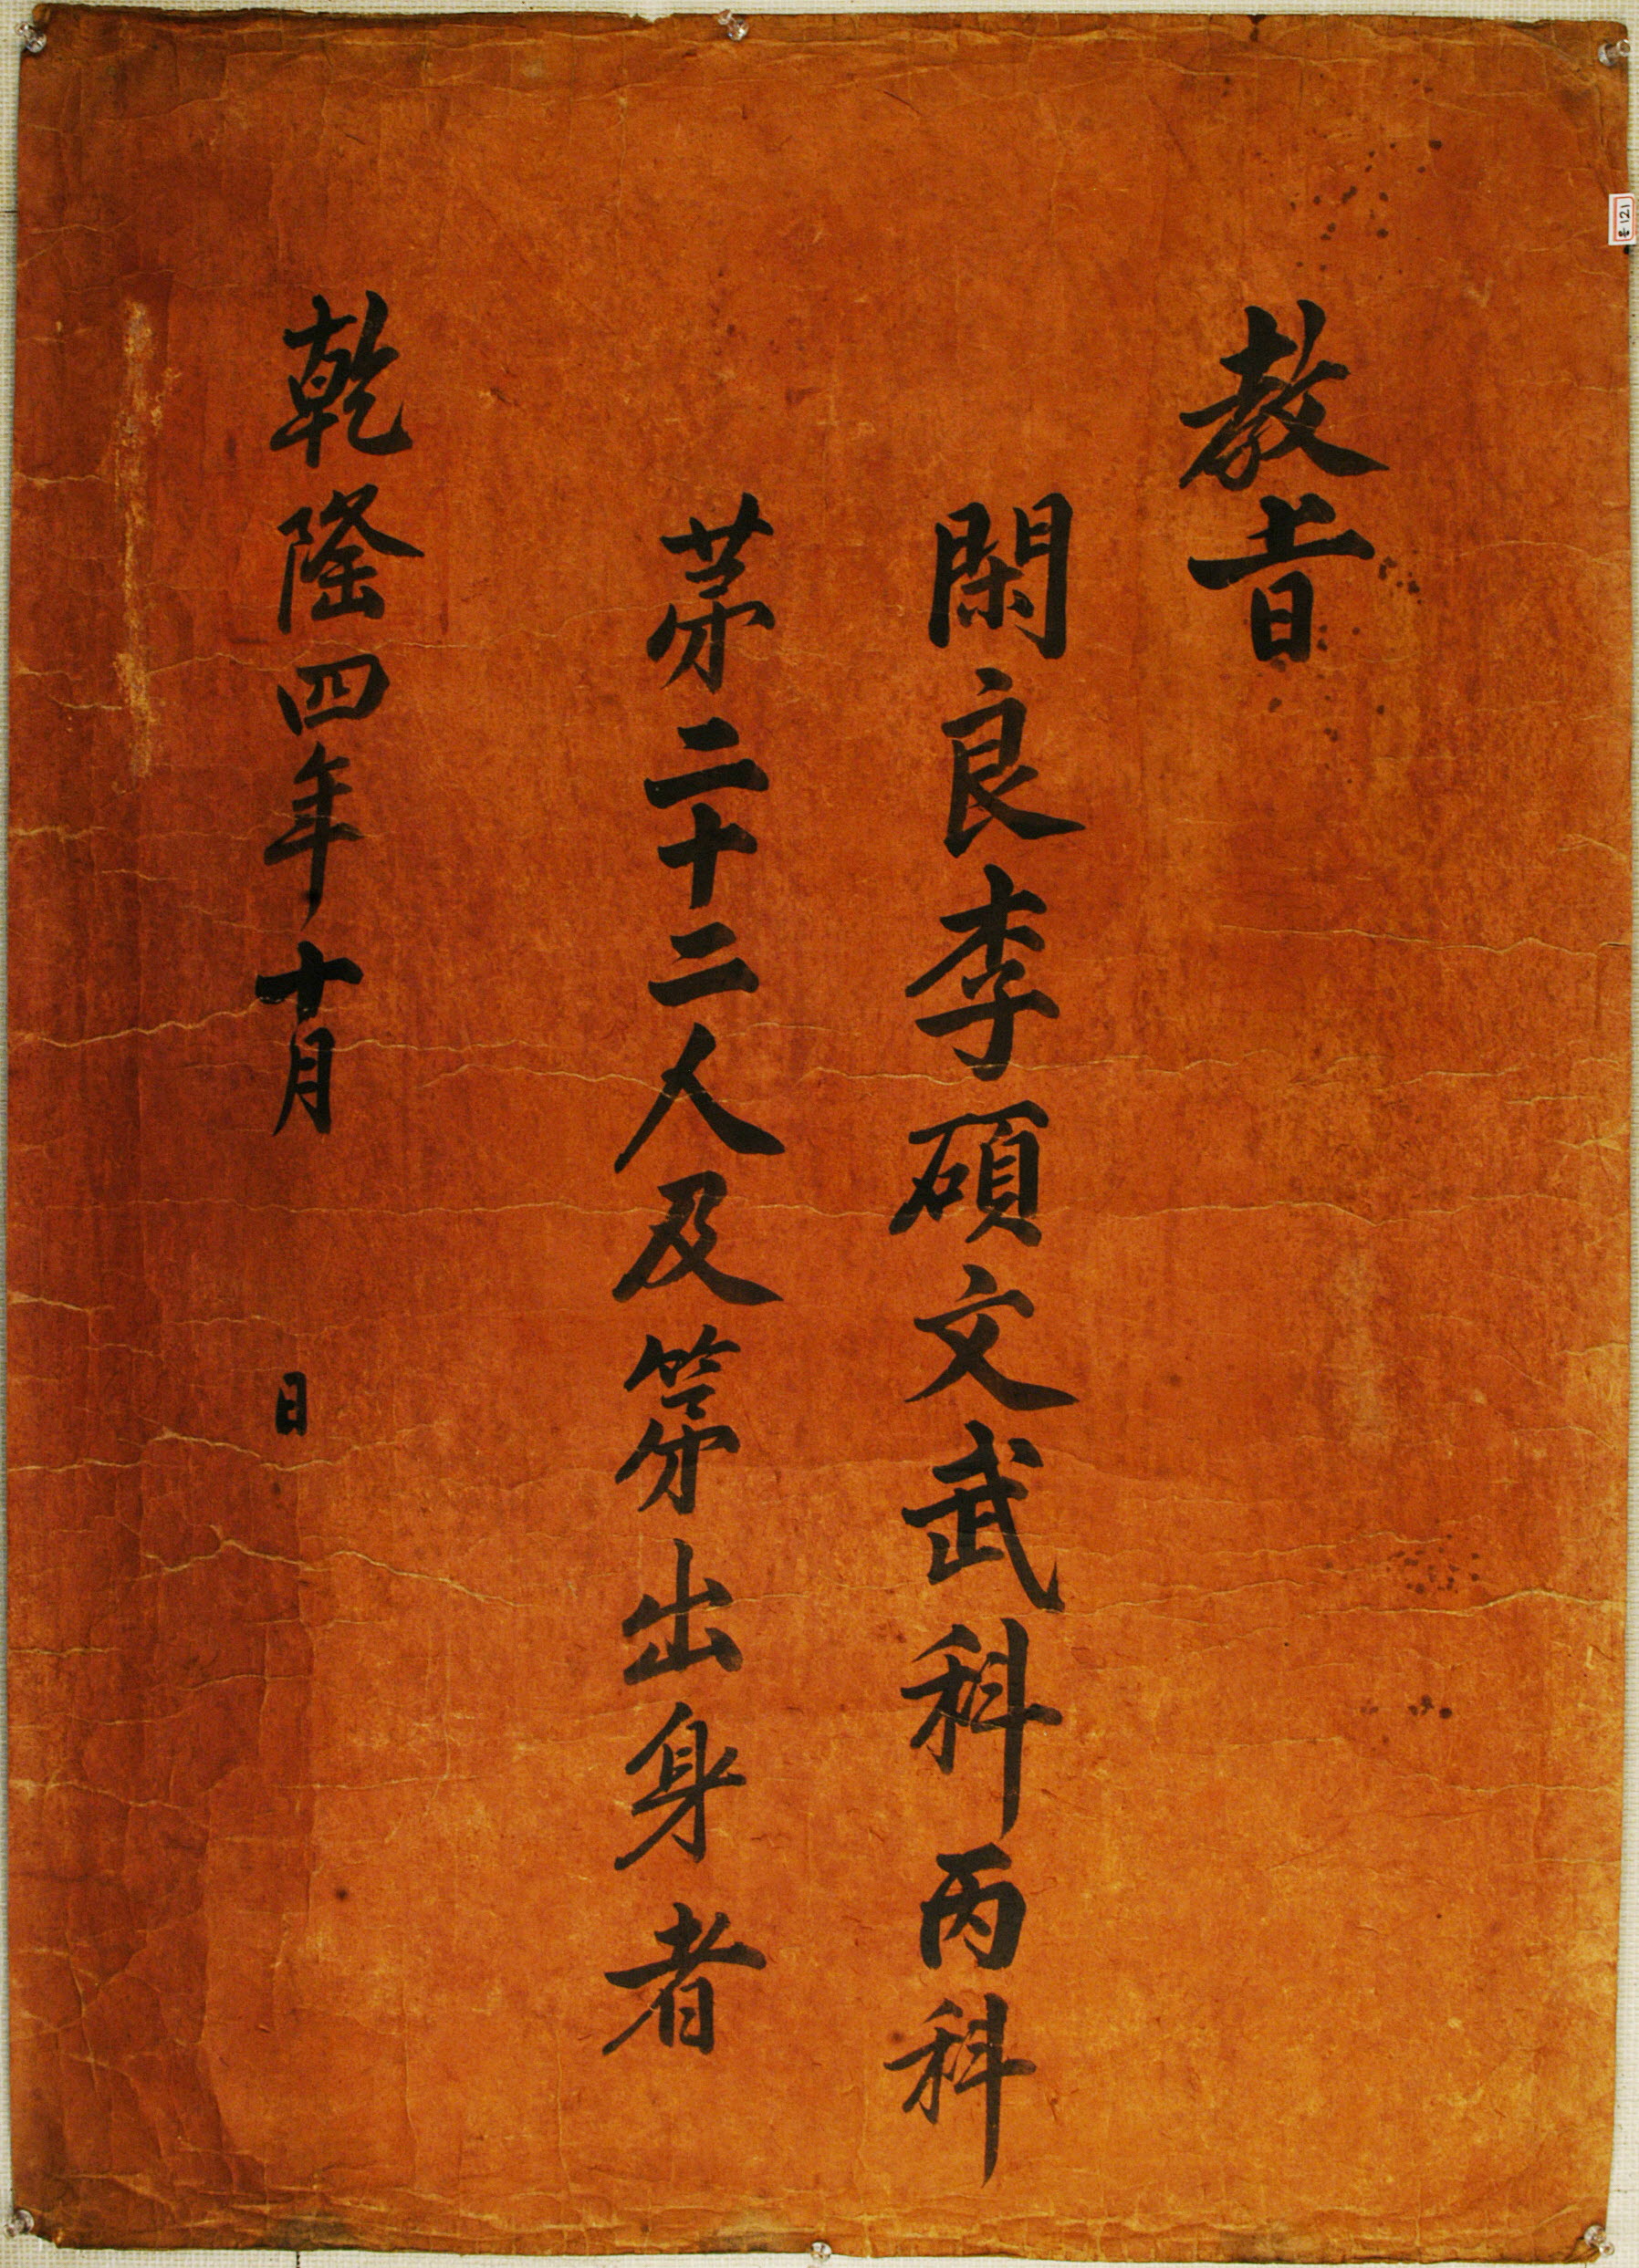 教旨
閑良李碩文武科丙科
第二十二人及第出身者
乾隆四年十月 日
号121